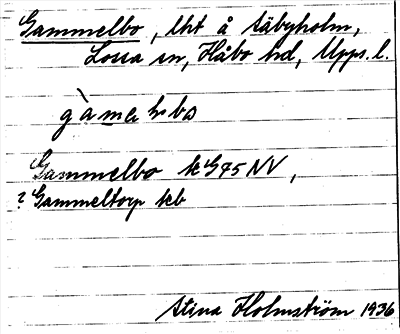 Gammelbo, lht å Säbyholm,
Lossa sn, Håbo hd, Upps. l.
Gammelbo k G 95 NV,
? Gammeltorp jeb
Stina Holmström 1936